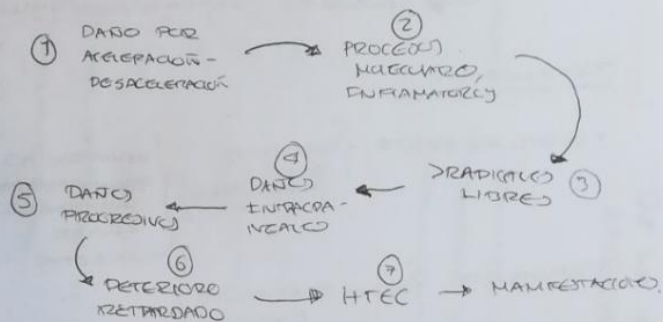 ① DAÑO POR
ACELERACIÓN -
DESACELERACIÓN
②
PROCESOS
MOLECULARES,
INFLAMATORIOS
>RADICALES ③
LIBRES
④
DAÑOS
INTRACRA-
NEALES
⑤ DAÑOS
PROGRESIVOS
⑥
DETERIORO
RETARDADO
⑦
HTEC → MANIFESTACIONES